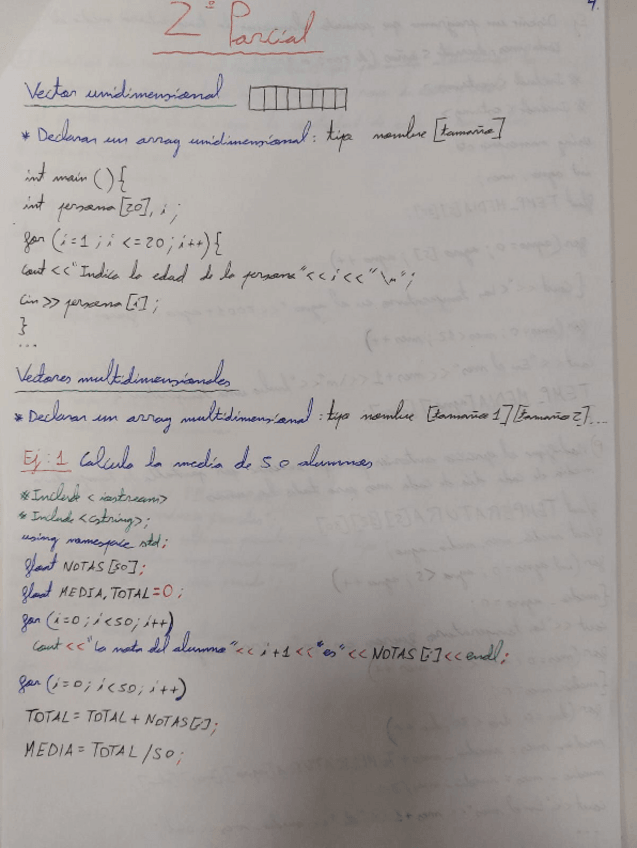 4.
2º Parcial
Vector unidimensional
* Declarar un array unidimensional: tipo nombre [tamaño]
int main () {
int persona [20], i ;
for (i=1 ; i <=20 ; i++) {
cout << "Indica la edad de la persona" << i << "\n";
cin >> persona [i] ;
}
...
Vectores multidimensionales
* Declarar un array multidimensional: tipo nombre [tamaño 1][tamaño 2]...
Ej: 1 Calcula la media de 50 alumnos
# Include < iostream>
# Include <cstring>;
using namespace std;
float NOTAS [50];
float MEDIA, TOTAL=0 ;
for (i=0 ; i<50 ; i++)
cout << "La nota del alumno" << i+1 << "es" << NOTAS [i] << endl;
for (i=0 ; i<50 ; i++)
TOTAL = TOTAL + NOTAS[i];
MEDIA = TOTAL /50 ;